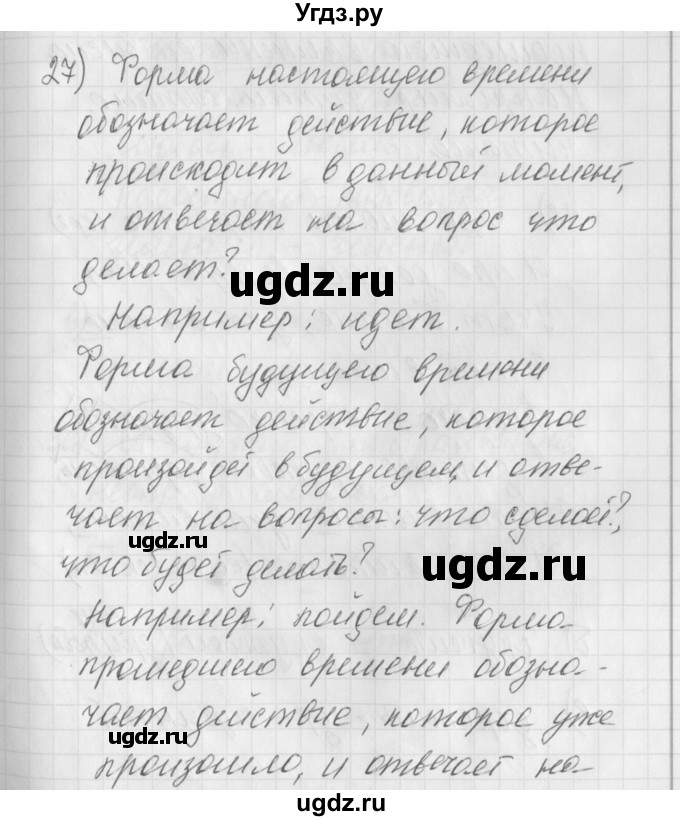 Угдз.ру
27) Форма настоящего времени
обозначает действие, которое
происходит в данный момент,
и отвечает на вопрос что
делает?
ugdz.ru
Например: идет.
Форма будущего времени
обозначает действие, которое
произойдет в будущем, и отве-
чает на вопросы: что сделает?,
ugdz.ru
что будет делать?
ugdz.ru
Например: пойдем. Форма
прошедшего времени обозна-
чает действие, которое уже
ugdz.ru
произошло, и отвечает на
ugdz.ru